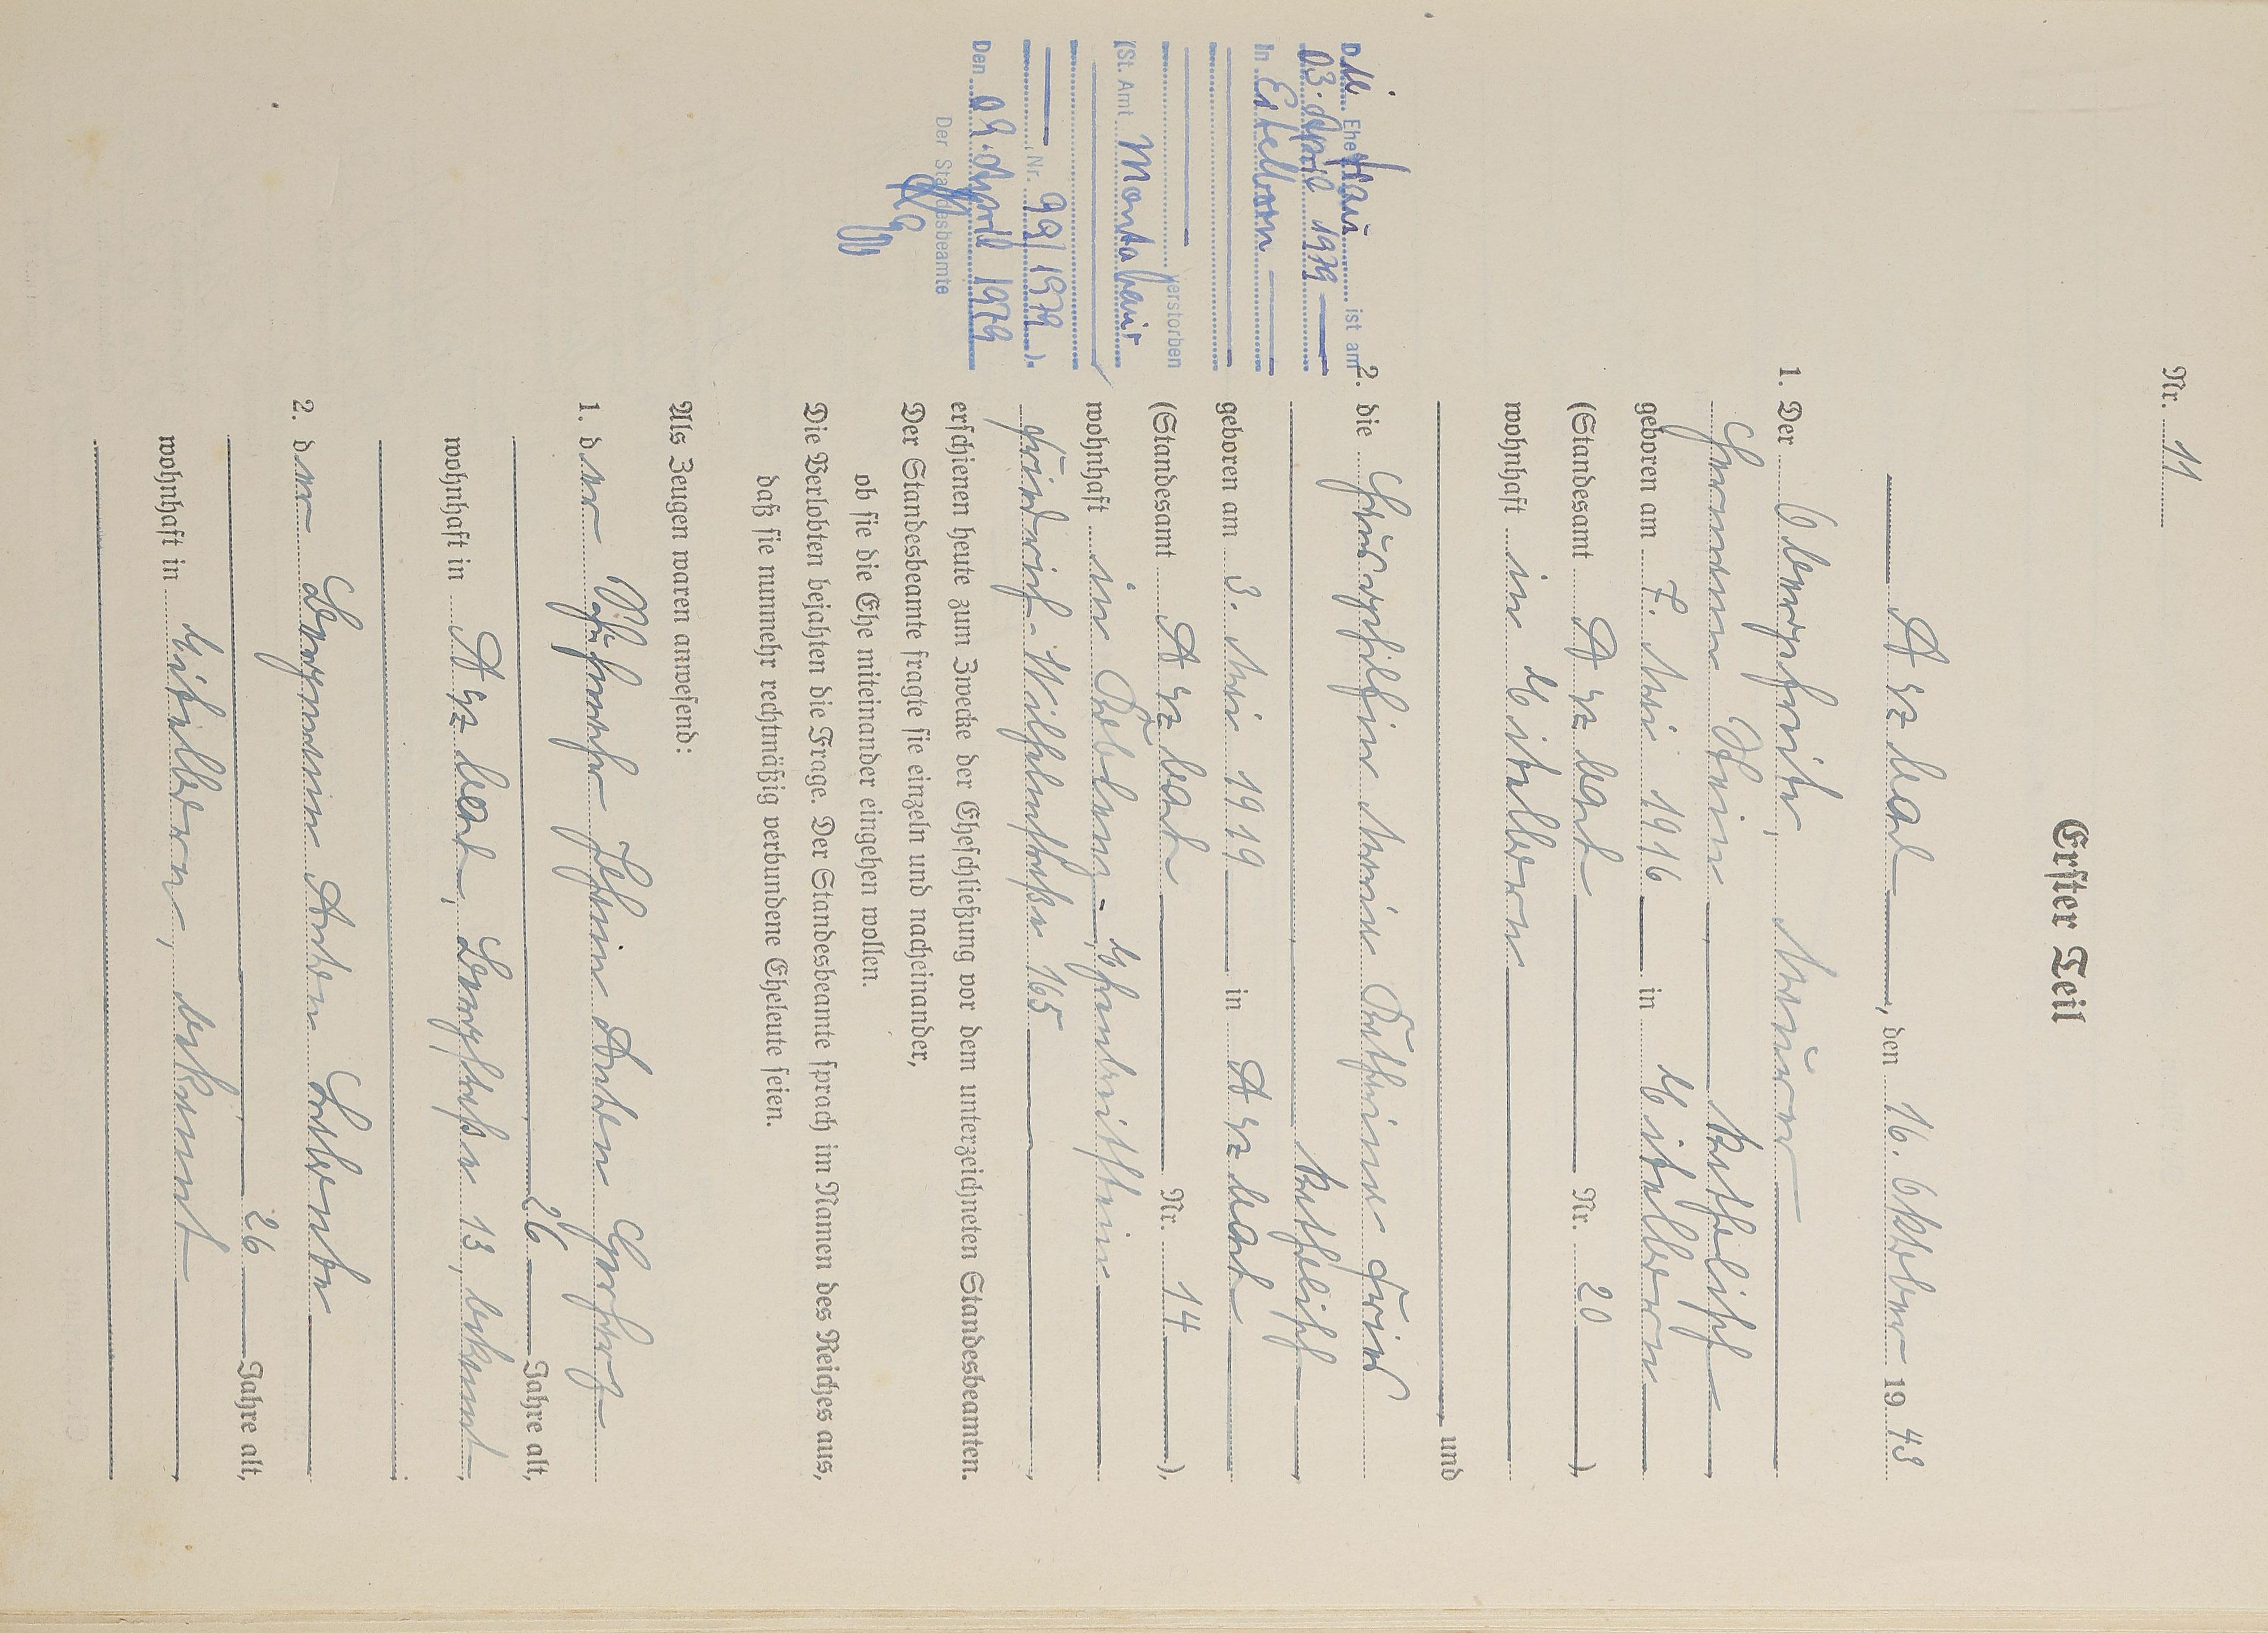 Nr. 11
Erster Teil
Arzbach, den 16. Oktober 1943
1. Der Obergefreite, Maurer
Hermann katholisch
geboren am 7. Mai 1916 in Eitelborn
(Standesamt Arzbach Nr. 20),
wohnhaft in Eitelborn
, und
2. die Hausgehilfin Maria Katharina
, katholisch,
geboren am 3. Mai 1919 in Arzbach
(Standesamt Arzbach Nr. 14),
wohnhaft in Koblenz-Ehrenbreitstein
Friedrich-Wilhelmstraße 165,
erschienen heute zum Zwecke der Eheschließung vor dem unterzeichneten Standesbeamten.
Der Standesbeamte fragte sie einzeln und nacheinander,
ob sie die Ehe miteinander eingehen wollen.
Die Verlobten bejahten die Frage. Der Standesbeamte sprach im Namen des Reiches aus,
daß sie nunmehr rechtmäßig verbundene Eheleute seien.
Als Zeugen waren anwesend:
1. der Johann Anton
, 26 Jahre alt,
wohnhaft in Arzbach, Bergstraße 13, bekannt,
2. der Bergmann Anton Labonte
, 26 Jahre alt,
wohnhaft in Eitelborn, bekannt,
Die Ehefrau ist am
03. April 1979
in Eitelborn
verstorben
(St. Amt Montabaur
, Nr. 99/1979).
Den 09. April 1979
Der Standesbeamte